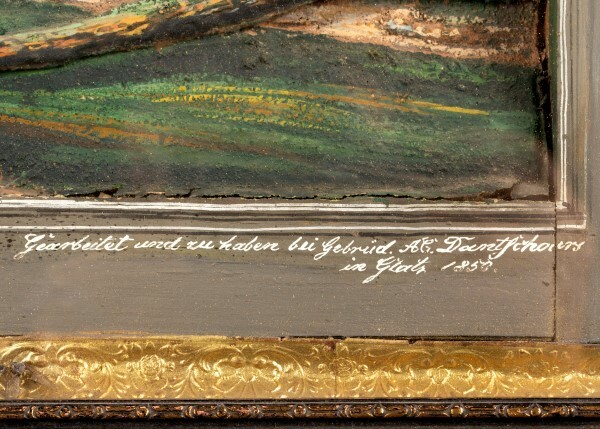 Gearbeitet und zu haben bei Gebrüd.
in Glatz 1850.